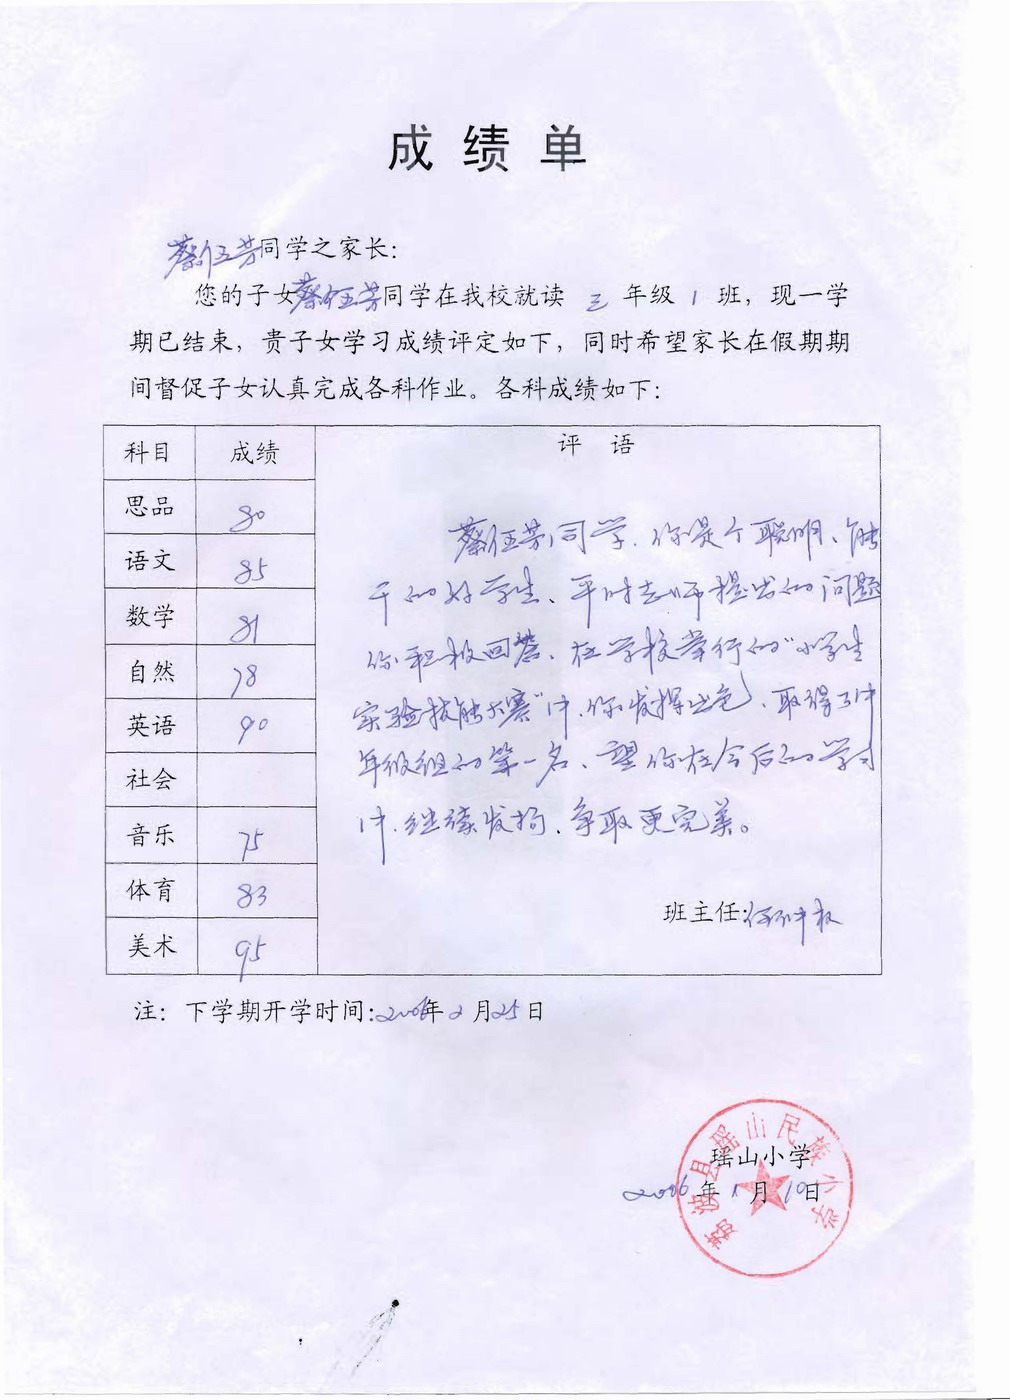 成绩单
蔡伍芳同学之家长：
您的子女蔡伍芳同学在我校就读 三 年级 1 班，现一学
期已结束，贵子女学习成绩评定如下，同时希望家长在假期期
间督促子女认真完成各科作业。各科成绩如下：
科目 成绩 评 语
思品 80
语文 85
数学 81
自然 78
英语 90
社会
音乐 75
体育 83
美术 95
蔡伍芳同学，你是个聪明、能
干的好学生、平时老师提出的问题
你积极回答、在学校举行的“小学生
实验技能大赛”中，你发挥出色、取得了中
年级组的第一名、望你在今后的学习
中，继续发扬、争取更完美。
班主任：何
注：下学期开学时间：2006年2月25日
瑶山小学
2006年1月10日
荔波县瑶山民族小学